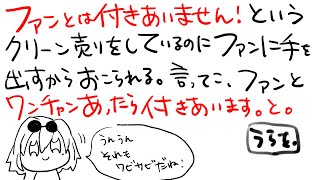 ファンとは付きあいません!という
クリーン売りをしているのにファンに手を
出すからおこられる。言ってこ、ファンと
ワンチャンあったら付きあいます。と。
うんうん
それも
ワビサビだね!
うらを。